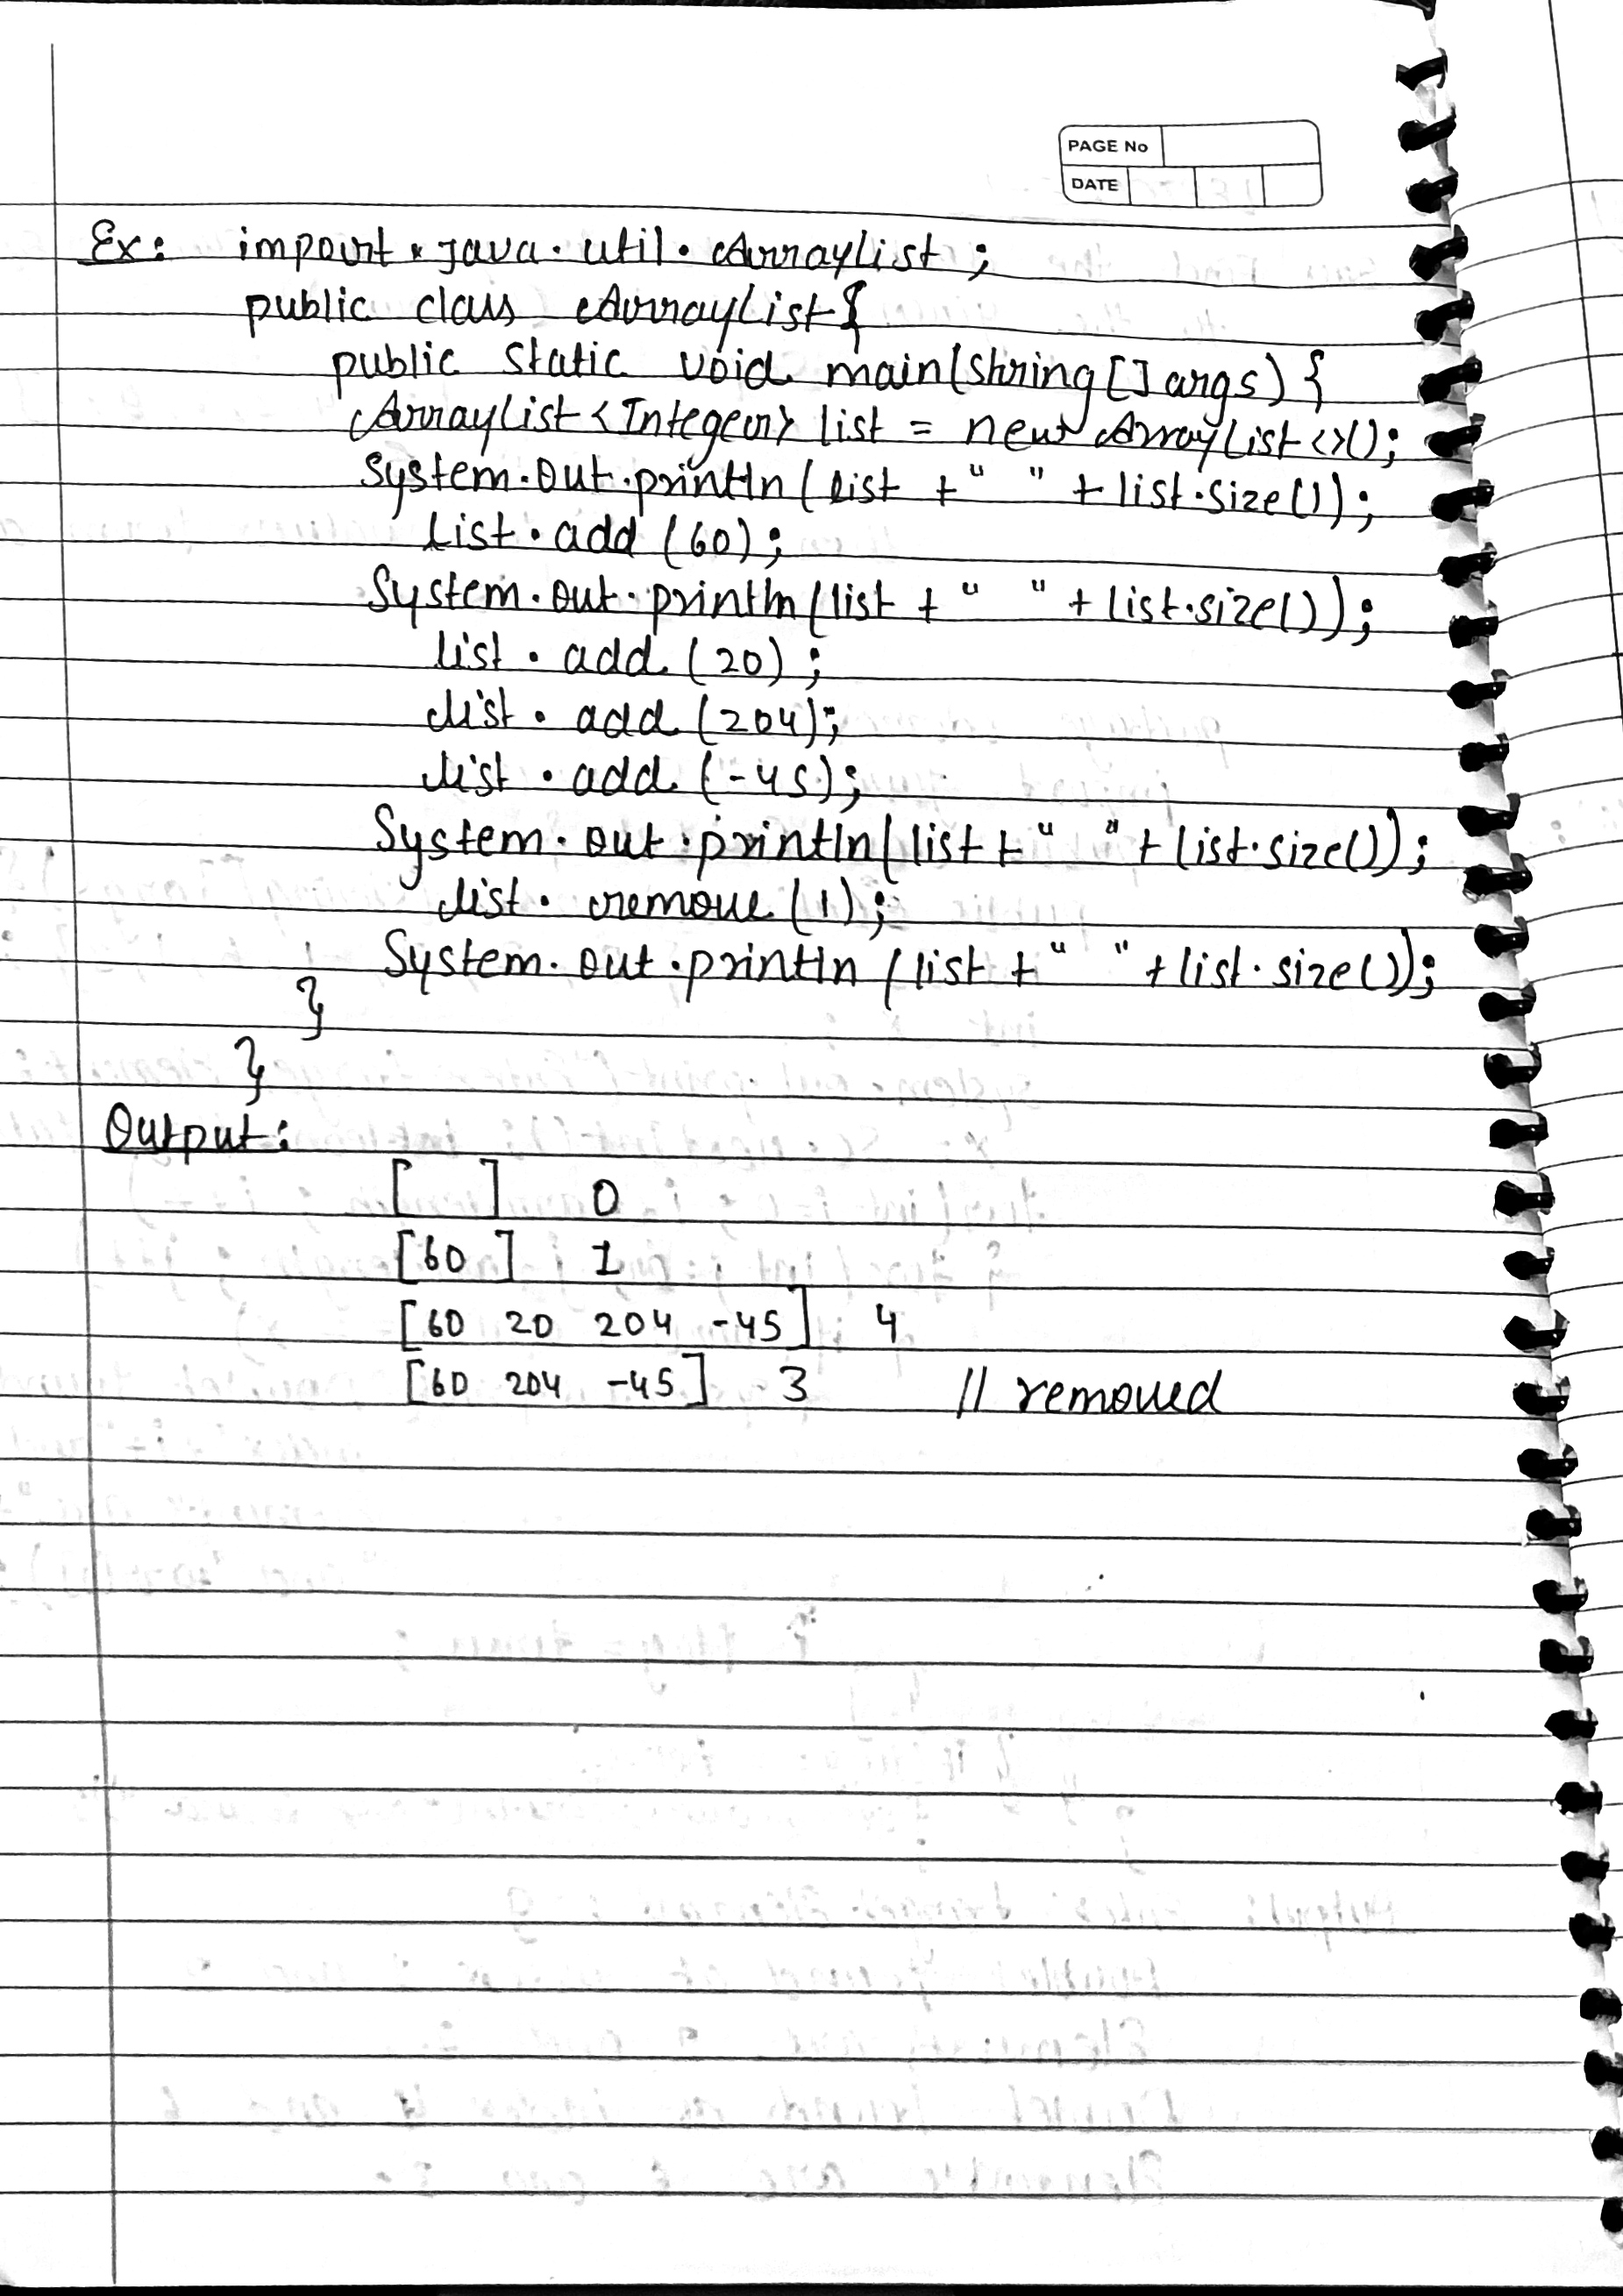 PAGE No
DATE
Ex: import java.util.ArrayList;
public class ArrayList{
public static void main(String[] args) {
ArrayList<Integer> list = new ArrayList<>();
System.out.println(list + " " + list.size());
list.add(60);
System.out.println(list + " " + list.size());
list.add(20);
list.add(204);
list.add(-45);
System.out.println(list + " " + list.size());
list.remove(1);
System.out.println(list + " " + list.size());
}
}
Output:
[ ] 0
[60 ] 1
[60 20 204 -45] 4
[60 204 -45] 3 // removed